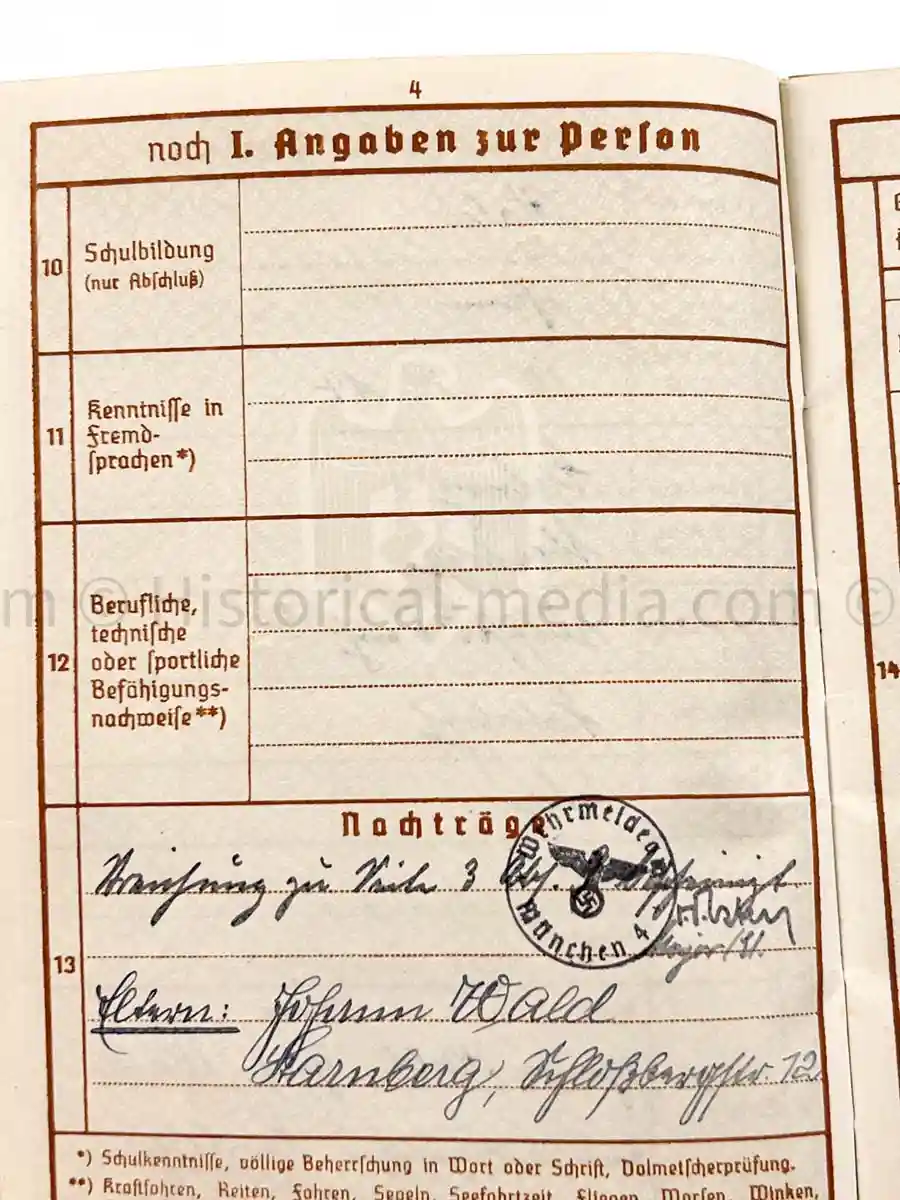 4
noch I. Angaben zur Person
10
Schulbildung
(nur Abschluß)
11
Kenntnisse in
Fremd-
sprachen*)
12
Berufliche,
technische
oder sportliche
Befähigungs-
nachweise**)
m © Historical-media.com ©
14
Nachträge
Wehrmeldea
München 4
13
Streichung zu Seite 3
Major
Eltern: Johann Wald
Starnberg, Schloßbergstr 12
*) Schulkenntnisse, völlige Beherrschung in Wort oder Schrift, Dolmetscherprüfung.
**) Kraftfahren, Reiten, Fahren, Segeln, Seefahrtzeit, Fliegen, Morsen, Winken,